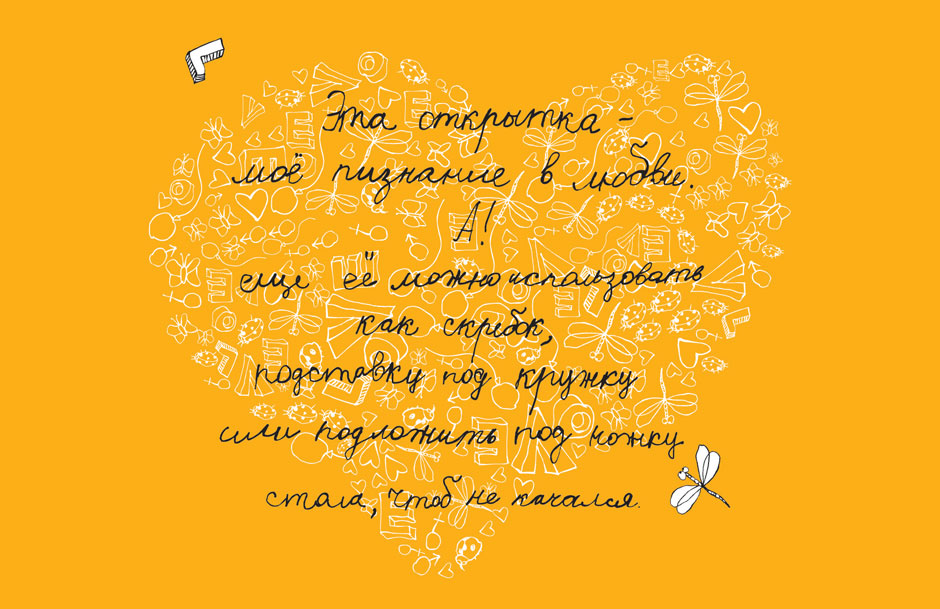 Эта открытка –
моё пизнание в любви.
А!
еще её можно использовать
как скребок,
подставку под кружку
или подложить под ножку
стола, чтоб не качался.